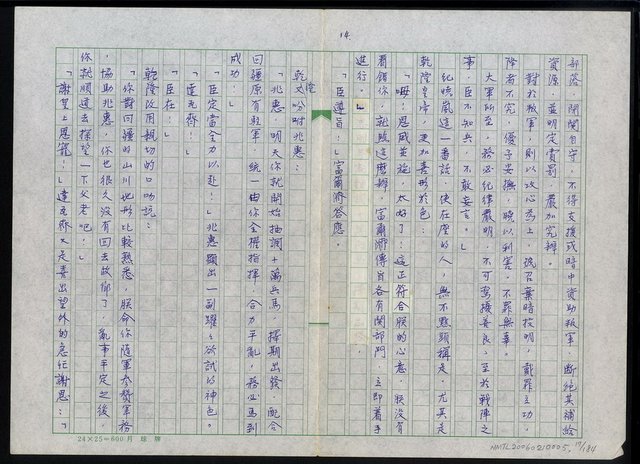 14
部落，閉關自守，不得支援或暗中資助叛軍，斷絕其補給
資源，並明定賞罰，嚴加究辦。
對於叛軍，則以攻心為上，號召棄暗投明，戴罪立功，
降者不究，優予安撫，曉以利害，不罪無辜。
大軍所至，務必紀律嚴明，不可驚擾善良，至於戰陣之
事，臣不知兵，不敢妄言。」
紀曉嵐這一番話，使在座的人，無不點頭稱是，尤其是
乾隆皇帝，更加喜形於色：
「嗯！恩威並施，太好了！這正符合朕的心意，朕沒有
看錯你，就照這麼辦，富爾濟傳旨各有關部門，立即着手
進行。」
「臣遵旨！」富爾濟答應。
乾隆又吩咐兆惠：
「兆惠，明天你就開始抽調十萬兵馬，擇期出發，配合
回疆原有駐軍，統一由你全權指揮，合力平亂，務必馬到
成功！」
「臣定當全力以赴！」兆惠顯出一副躍躍欲試的神色。
「達克齊！」
「臣在！」
乾隆改用親切的口吻說：
「你對回疆的山川地形比較熟悉，朕命你隨軍參贊軍務
，協助兆惠，你也很久沒有回去故鄉了，亂事平定之後，
你就順道去探望一下父老吧！」
「謝皇上恩寵！」達克齊又是喜出望外的急忙謝恩：「
24×25=600 月球牌
HMTL20060210005, 17/184